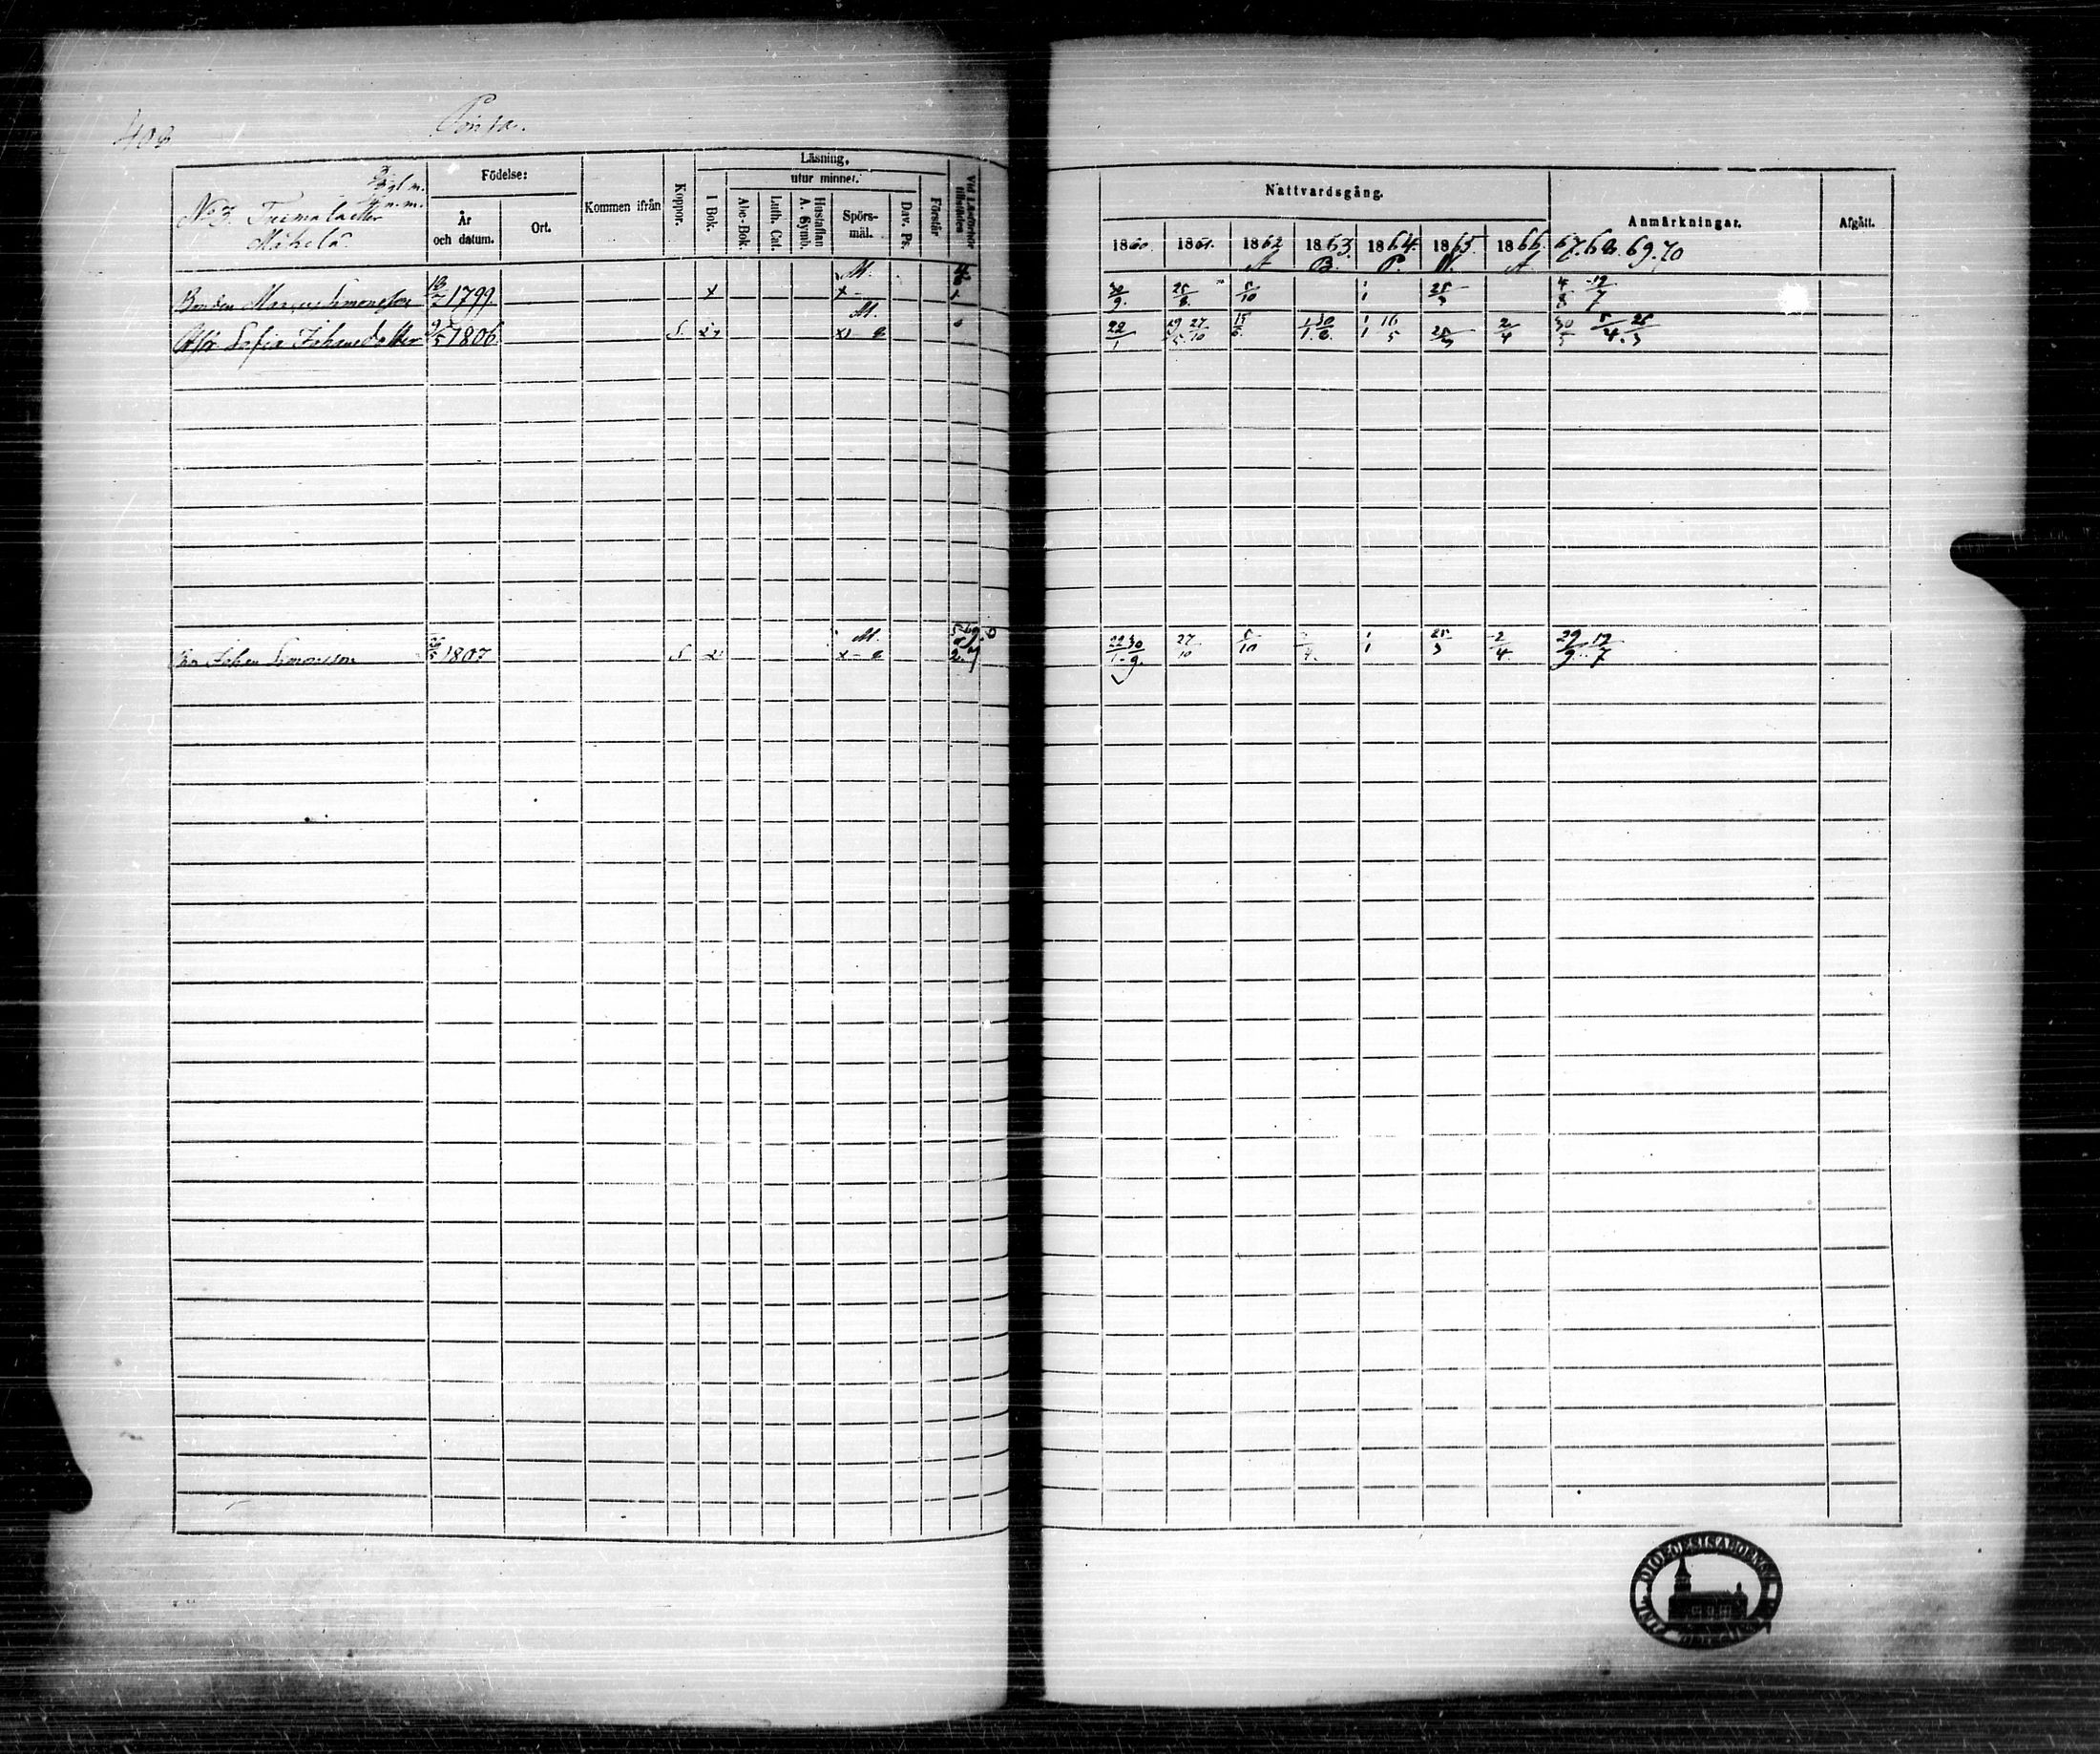 408
Ponsa.
Läsning,
Födelse:
utur minnet.
N:o 3.
Mäkelä
År och datum.
Ort.
Kommen ifrån
Koppor.
I Bok.
Abc-Bok.
Luth. Cat.
Hustaflan A. Symb.
Spörs-mål.
Dav. Ps.
Förstår
Vid Läsförhör tillstädes
Nattvardsgång.
Anmärkningar.
Afgått.
1860. 1861. 1862 1863. 1864. 1865. 1866. 67. 68. 69. 70
A B. P. N. A
Bonden Marcus Simonsson 18/7 1799 x M. x 30/9. 25/8. 5/10 1/1 25/3 4/8 12/7
Sofia Johansdotter 1806 S. M. 22/1 29/5 27/10 15/6. 1/1 16/5 25/3 2/4 5/4. 25/3
Johan Simonsson 1807 S M. 22/1 30/9. 27/10 5/10 1/1 25/3 2/4. 29/9. 12/7